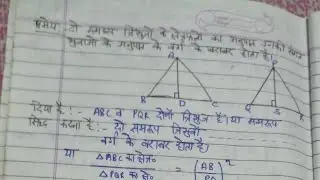 प्रमेय :- दो समरूप त्रिभुजों के क्षेत्रफलों का अनुपात उनकी संगत
भुजाओं के अनुपात के वर्ग के बराबर होता है।
A
B D C
P
Q S R
दिया है :- ABC व PQR दोनों त्रिभुज हैं। या समरूप
सिद्ध करना है :- दो समरूप त्रिभुजों
वर्ग के बराबर होता है।
या ΔABC का क्षे० = (AB)²
ΔPQR का क्षे० PQ